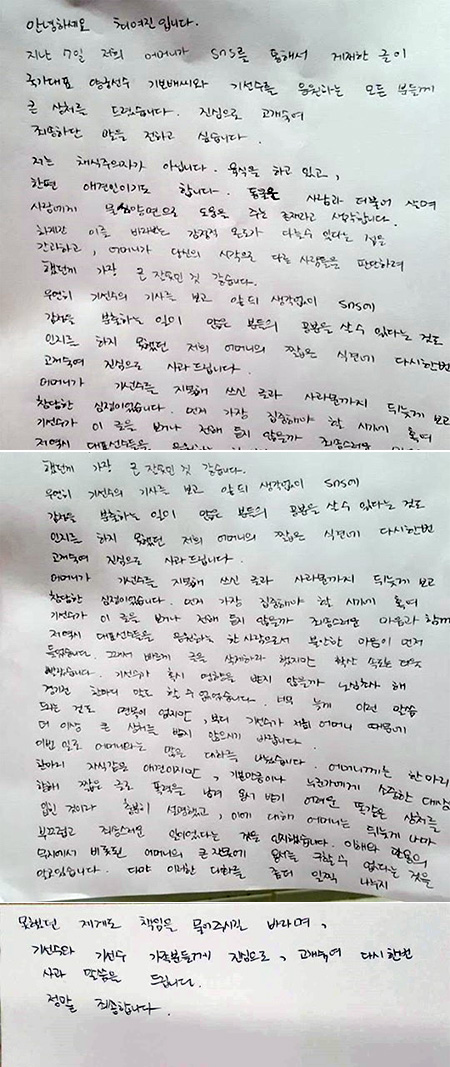 안녕하세요 최여진입니다.
지난 7일 저희 어머니가 SNS를 통해서 게재한 글이
국가대표 양궁선수 기보배씨와 기선수를 응원하는 모든 분들께
큰 상처를 드렸습니다. 진심으로 고개숙여
죄송하단 말을 전하고 싶습니다.
저는 채식주의자가 아닙니다. 육식을 하고 있고,
한편 애견인이기도 합니다. 동물은 사람과 더불어 살며
사람에게 물심양면으로 도움을 주는 존재라고 생각합니다.
하지만 이를 바라보는 감정적 온도가 다를수 있다는 점을
간과하고, 어머니가 당신의 시각으로 다른 사람들을 판단하려
했던게 가장 큰 잘못인 것 같습니다.
우연히 기선수의 기사를 보고 앞뒤 생각없이 SNS에
감정을 분출하는 일이 많은 분들의 공분을 살 수 있다는 것도
인지를 하지 못했던 저희 어머니의 짧은 식견에 다시한번
고개숙여 진심으로 사과 드립니다.
어머니가 기선수를 지목해 쓰신 글과 사과문까지 뒤늦게 보고
참담한 심정이었습니다. 먼저 가장 집중해야 할 시기에 혹여
기선수가 이 글을 보거나 전해 듣지 않을까 죄송스러운
저역시 대표선수들을
했던게 가장 큰 잘못인 것 같습니다.
우연히 기선수의 기사를 보고 앞뒤 생각없이 SNS에
감정을 분출하는 일이 많은 분들의 공분을 살 수 있다는 것도
인지를 하지 못했던 저희 어머니의 짧은 식견에 다시한번
고개숙여 진심으로 사과 드립니다.
어머니가 기선수를 지목해 쓰신 글과 사과문까지 뒤늦게 보고
참담한 심정이었습니다. 먼저 가장 집중해야 할 시기에 혹여
기선수가 이 글을 보거나 전해 듣지 않을까 죄송스러운 마음과 함께
저역시 대표선수들을 응원하는 한 사람으로서 불안한 마음이 먼저
들었습니다. 그래서 바로 글을 삭제하라 했지만 확산 속도는 더욱
빨랐습니다. 기선수가 혹시 영향을 받지 않을까 노심초사 해
경기전 한마디 말도 할 수 없었습니다. 너무 늦게 이런 말씀
되는 것도 면목이 없지만, 부디 기선수가 저희 어머니 때문에
더 이상 큰 상처를 받지 않으시기 바랍니다.
이번 일로 어머니와는 많은 대화를 나눴습니다. 어머니께는 한마리
한마리 자식같은 애견이지만, 기본만큼이나 누군가에게 소중한 대상
향해 짧은 글로 폭력을 남겨 왔기 받기 어려운 똑같은 상처를
입힌 것이라 충분히 설명했고, 이에 대해 어머니는 뒤늦게 나마
부끄럽고 죄송스러운 일이었다는 것을 인지했습니다. 이해와 관용의
무지에서 비롯된 어머니의 큰 잘못에 용서를 구할수 없다는 것을
알고있습니다. 다만 이러한 대화를 좀더 일찍 나누지
못했던 제게도 책임을 물어주시길 바라며,
기선수와 기선수 가족분들께 진심으로, 고개숙여 다시한번
사과 말씀을 드립니다.
정말 죄송합니다.